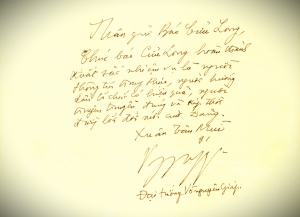 Thân gửi Báo Cửu Long,
Chúc báo Cửu Long hoàn thành
xuất sắc nhiệm vụ là người
thông tin trung thực, người hướng
dẫn là chủ có hiệu quả, người
tuyên truyền đúng và kịp thời
đường lối đổi mới của Đảng.
Xuân Tân Mùi
91
Đại tướng Võ Nguyên Giáp